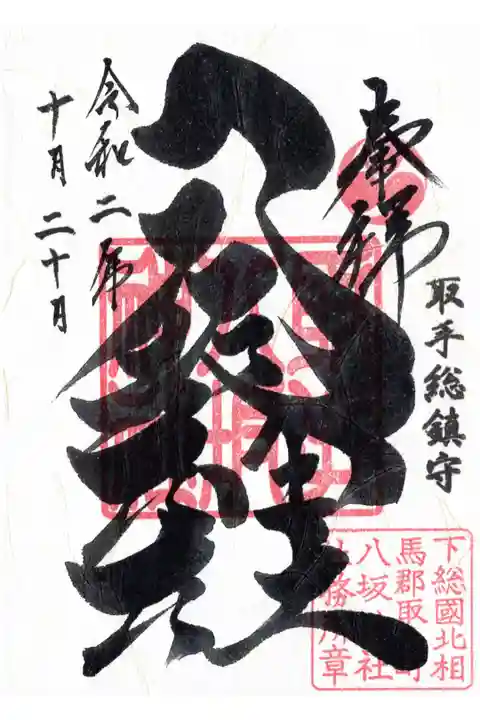 奉拝
取手総鎮守
八坂神社
令和二年
十月二十日
下総國北相
馬郡取手町
八坂神社
社務所章